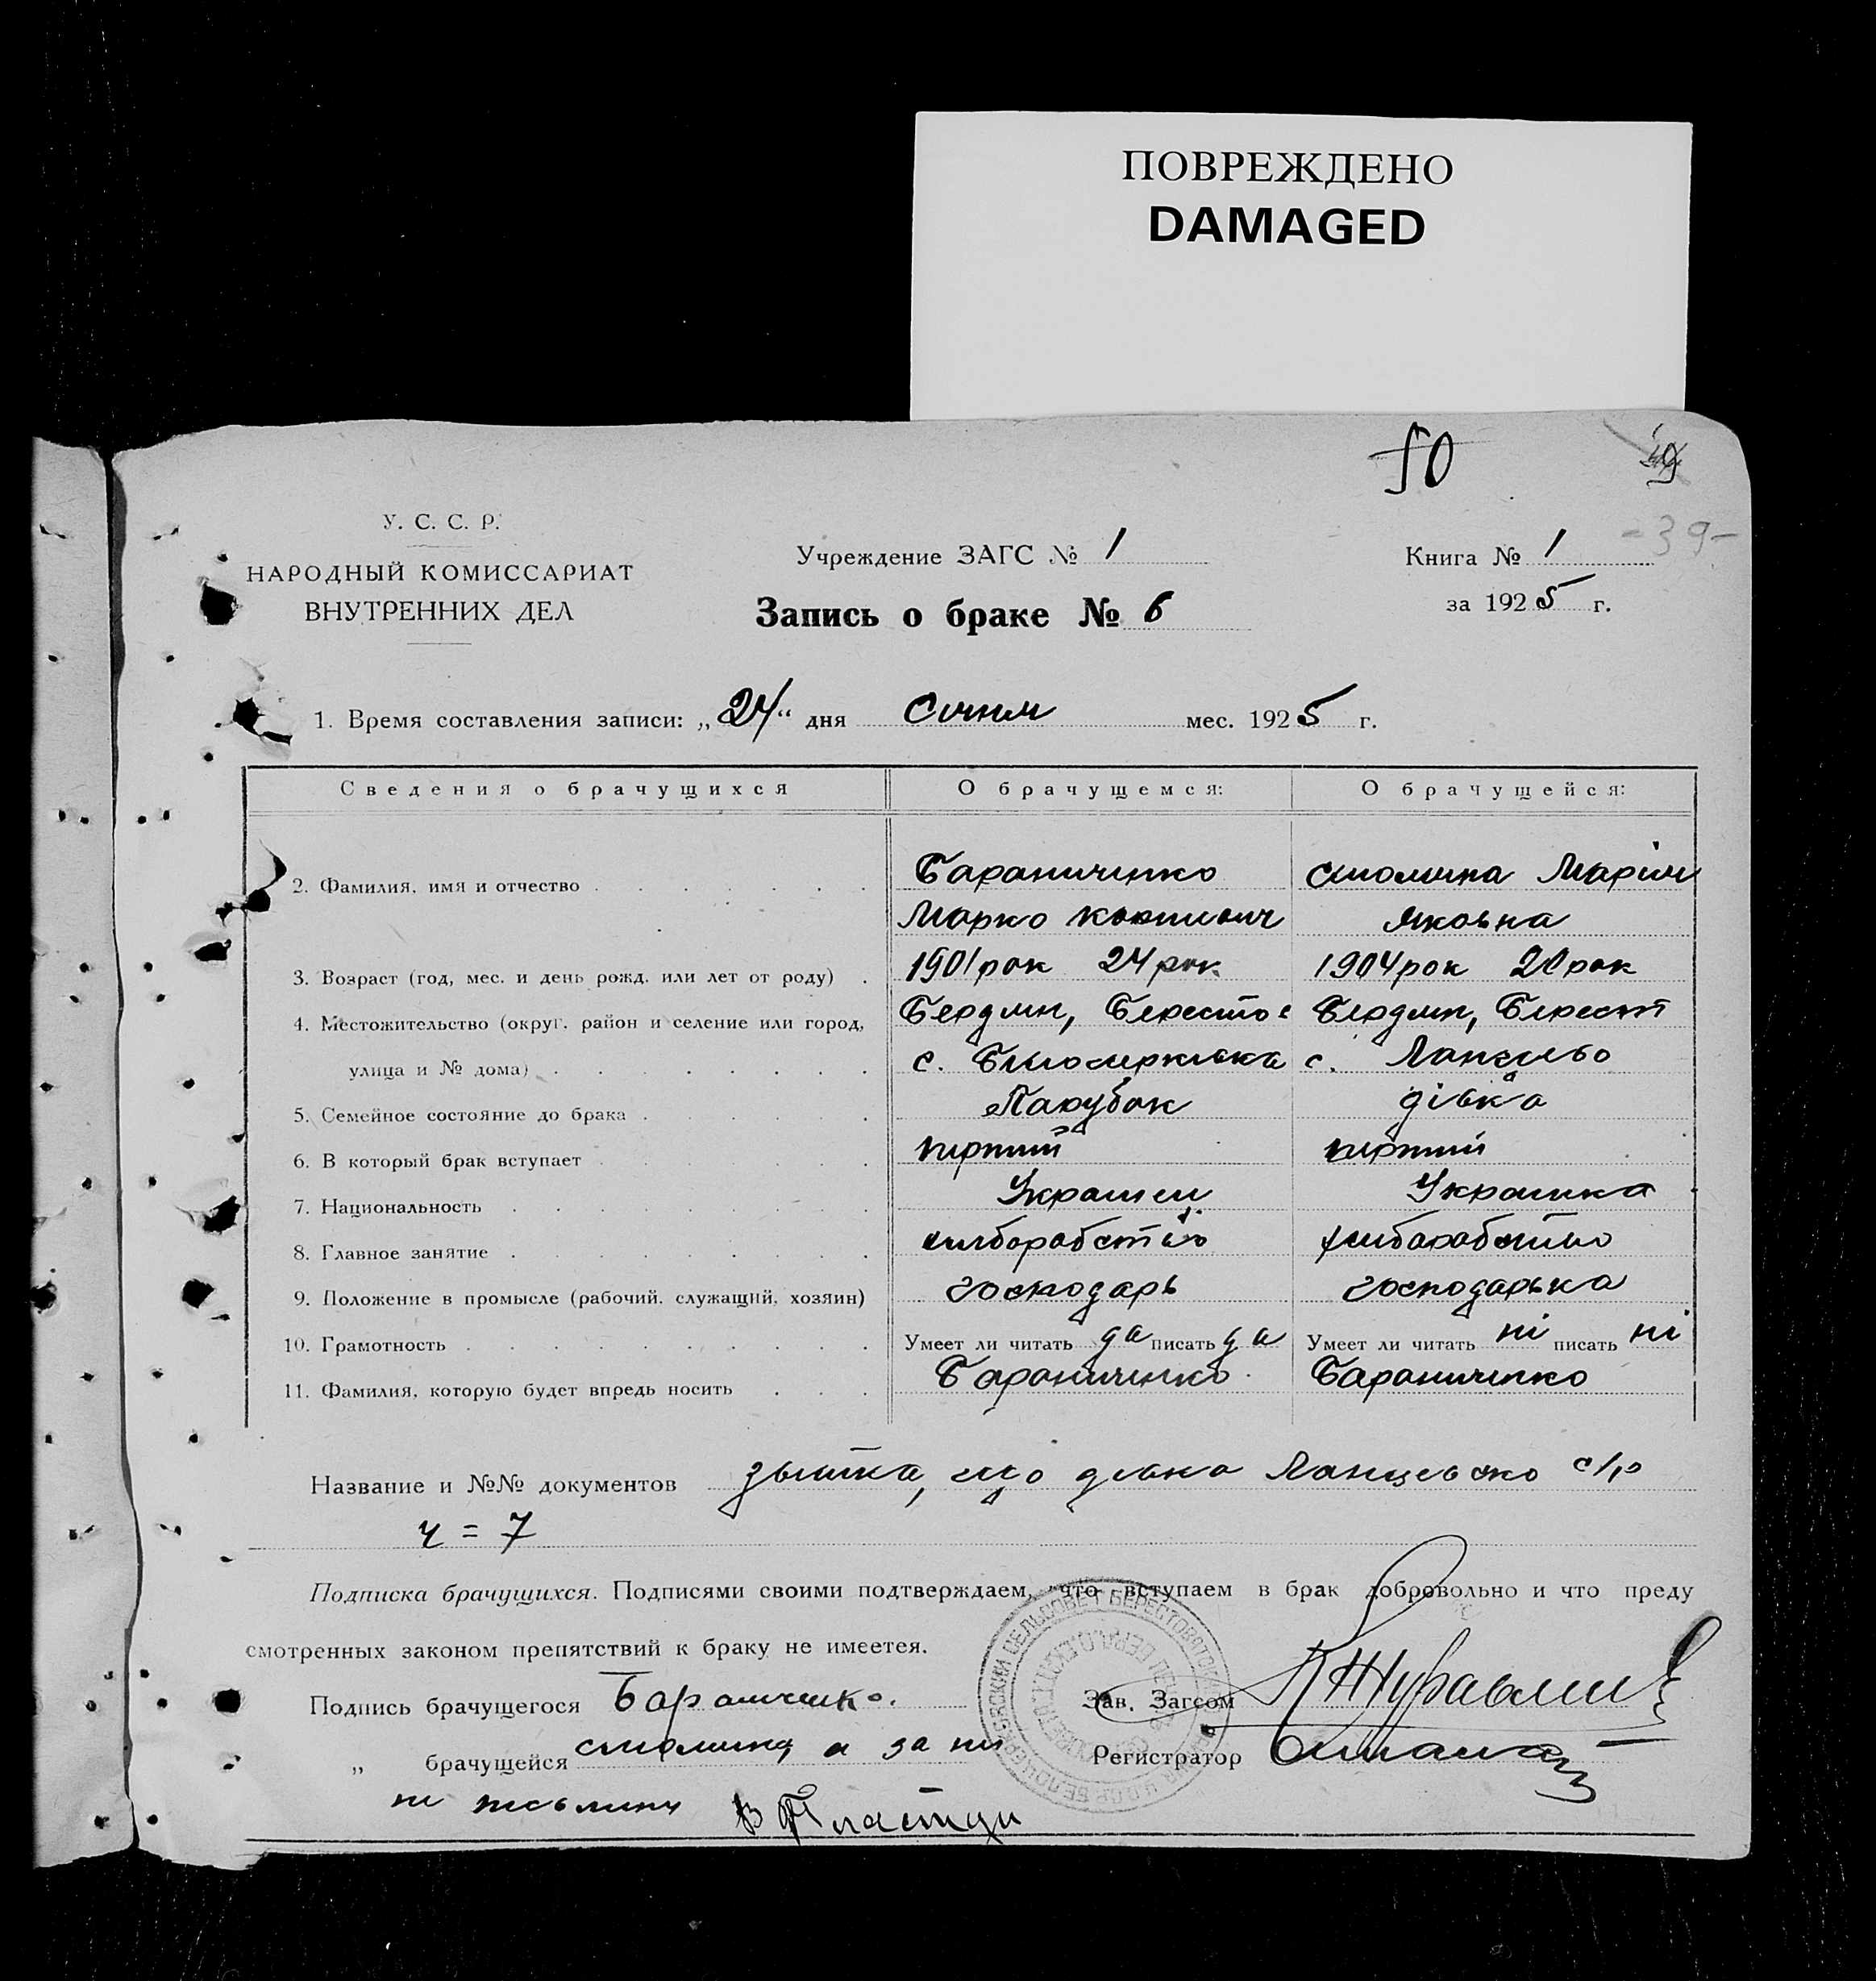 ПОВРЕЖДЕНО
DAMAGED
50
-39-
У. С. С. Р.
НАРОДНЫЙ КОМИССАРИАТ
ВНУТРЕННИХ ДЕЛ
Учреждение ЗАГС № 1
Книга № 1
Запись о браке № 6
за 1925 г.
1. Время составления записи: „24“ дня Січня мес. 1925 г.
Сведения о брачущихся О брачущемся: О брачущейся:
2. Фамилия, имя и отчество Бараниченко Марія
Марко Яковна
3. Возраст (год, мес. и день рожд. или лет от роду) 1901 рок 24 рок 1904 рок 20 рок
4. Местожительство (округ. район и селение или город, Бердян, Берестов Бердян, Берест
улица и № дома) с. с.
5. Семейное состояние до брака Парубок дівка
6. В который брак вступает перший перший
7. Национальность Украинец Украинка
8. Главное занятие хлиборобство хлиборобство
9. Положение в промысле (рабочий. служащий, хозяин) господарь господарька
10. Грамотность Умеет ли читать да писать да Умеет ли читать ні писать ні
11. Фамилия, которую будет впредь носить Бараниченко Бараниченко
Название и №№ документов що дівка с/р
ч = 7
Подписка брачущихся. Подписями своими подтверждаем, что вступаем в брак добровольно и что преду
смотренных законом препятствий к браку не имеется.
Подпись брачущегося Бараниченко. Зав. Загсом
„ брачущейся а за ни Регистратор